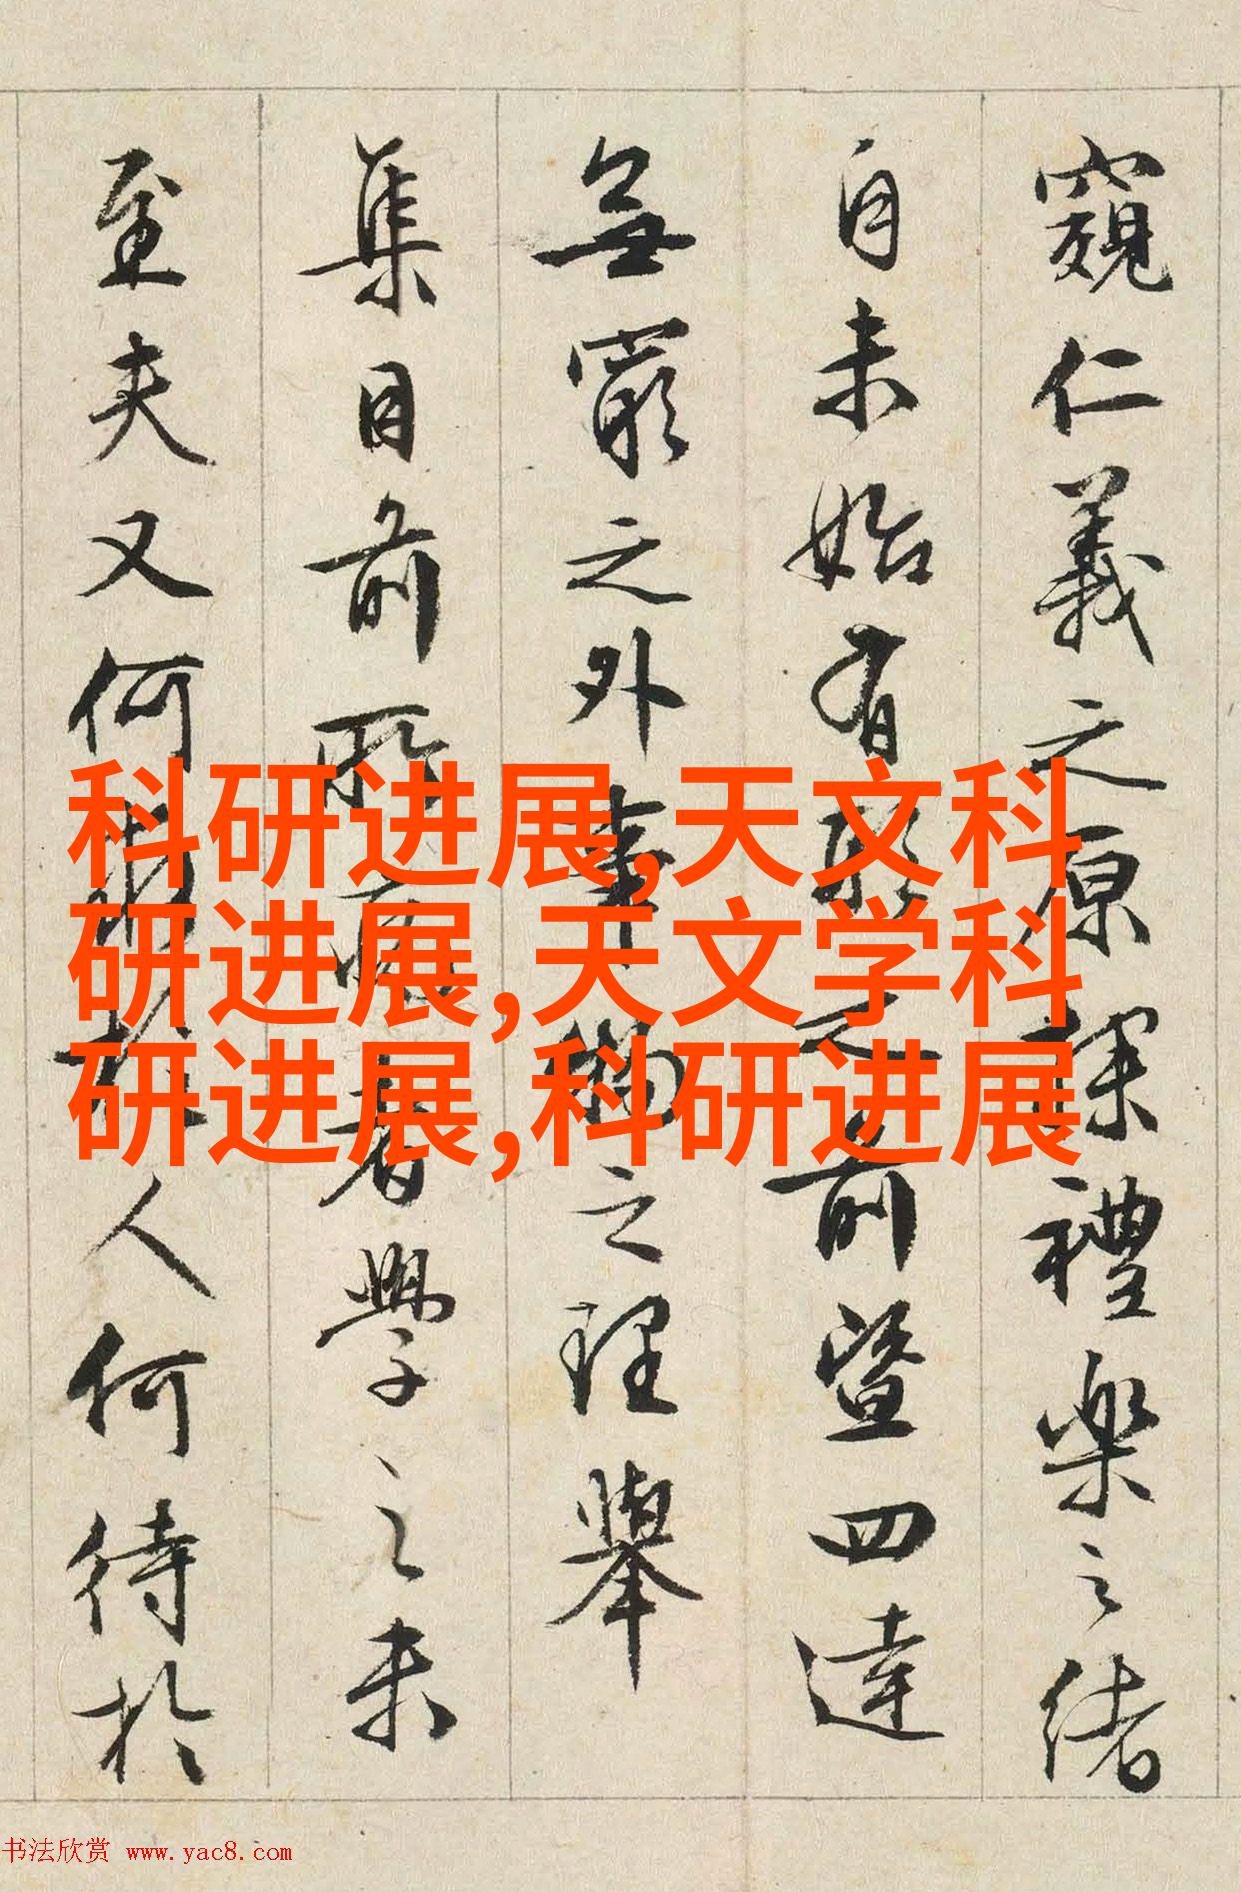 窺仁義之原探禮樂之緒
自未始有形之前暨四達
無窮之外事物之理舉
集目前所病者學之未
至夫又何求於人何待於
科研进展,天文科
研进展,天文学科
研进展,科研进展
书法欣赏 www.yac8.com